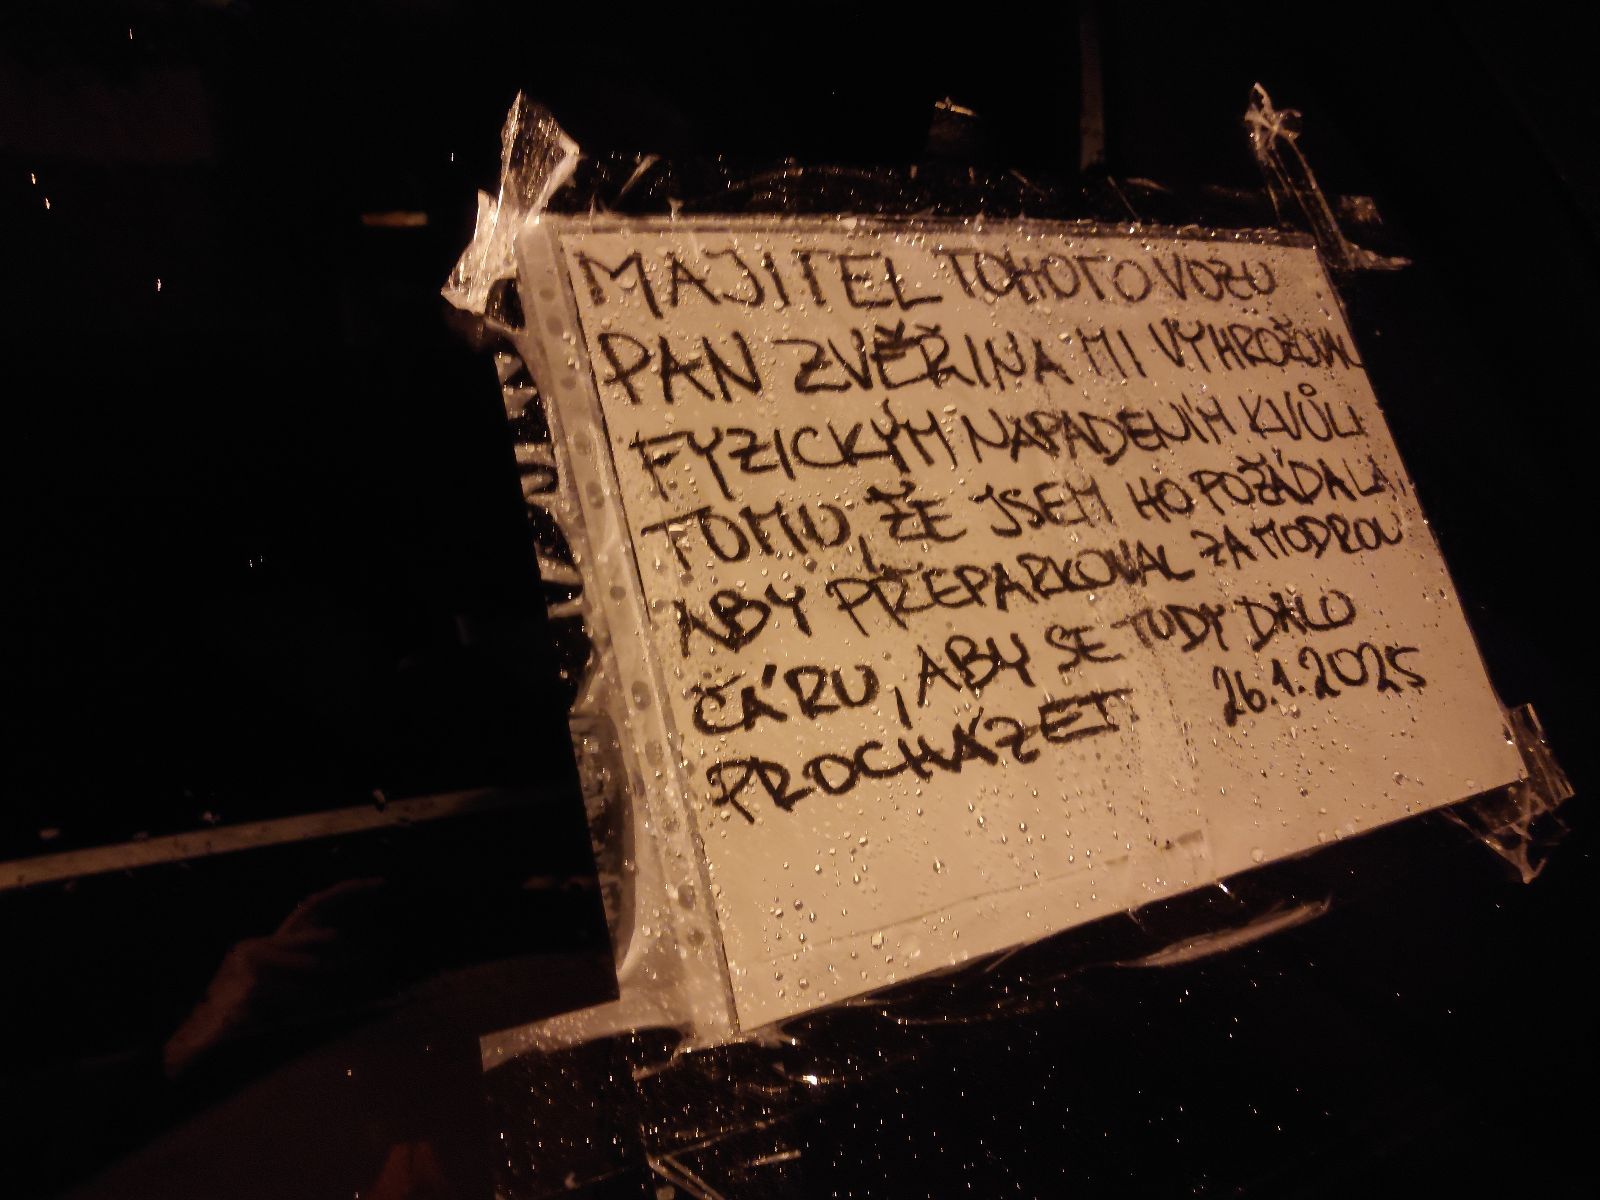 MAJITEL TOHOTO VOZU
PAN ZVĚŘINA MI VYHROŽOVAL
FYZICKÝM NAPADENÍM KVŮLI
TOMU, ŽE JSEM HO POŽÁDALA,
ABY PŘEPARKOVAL ZA MODROU
ČÁRU, ABY SE TUDY DALO
PROCHÁZET 26.1.2025